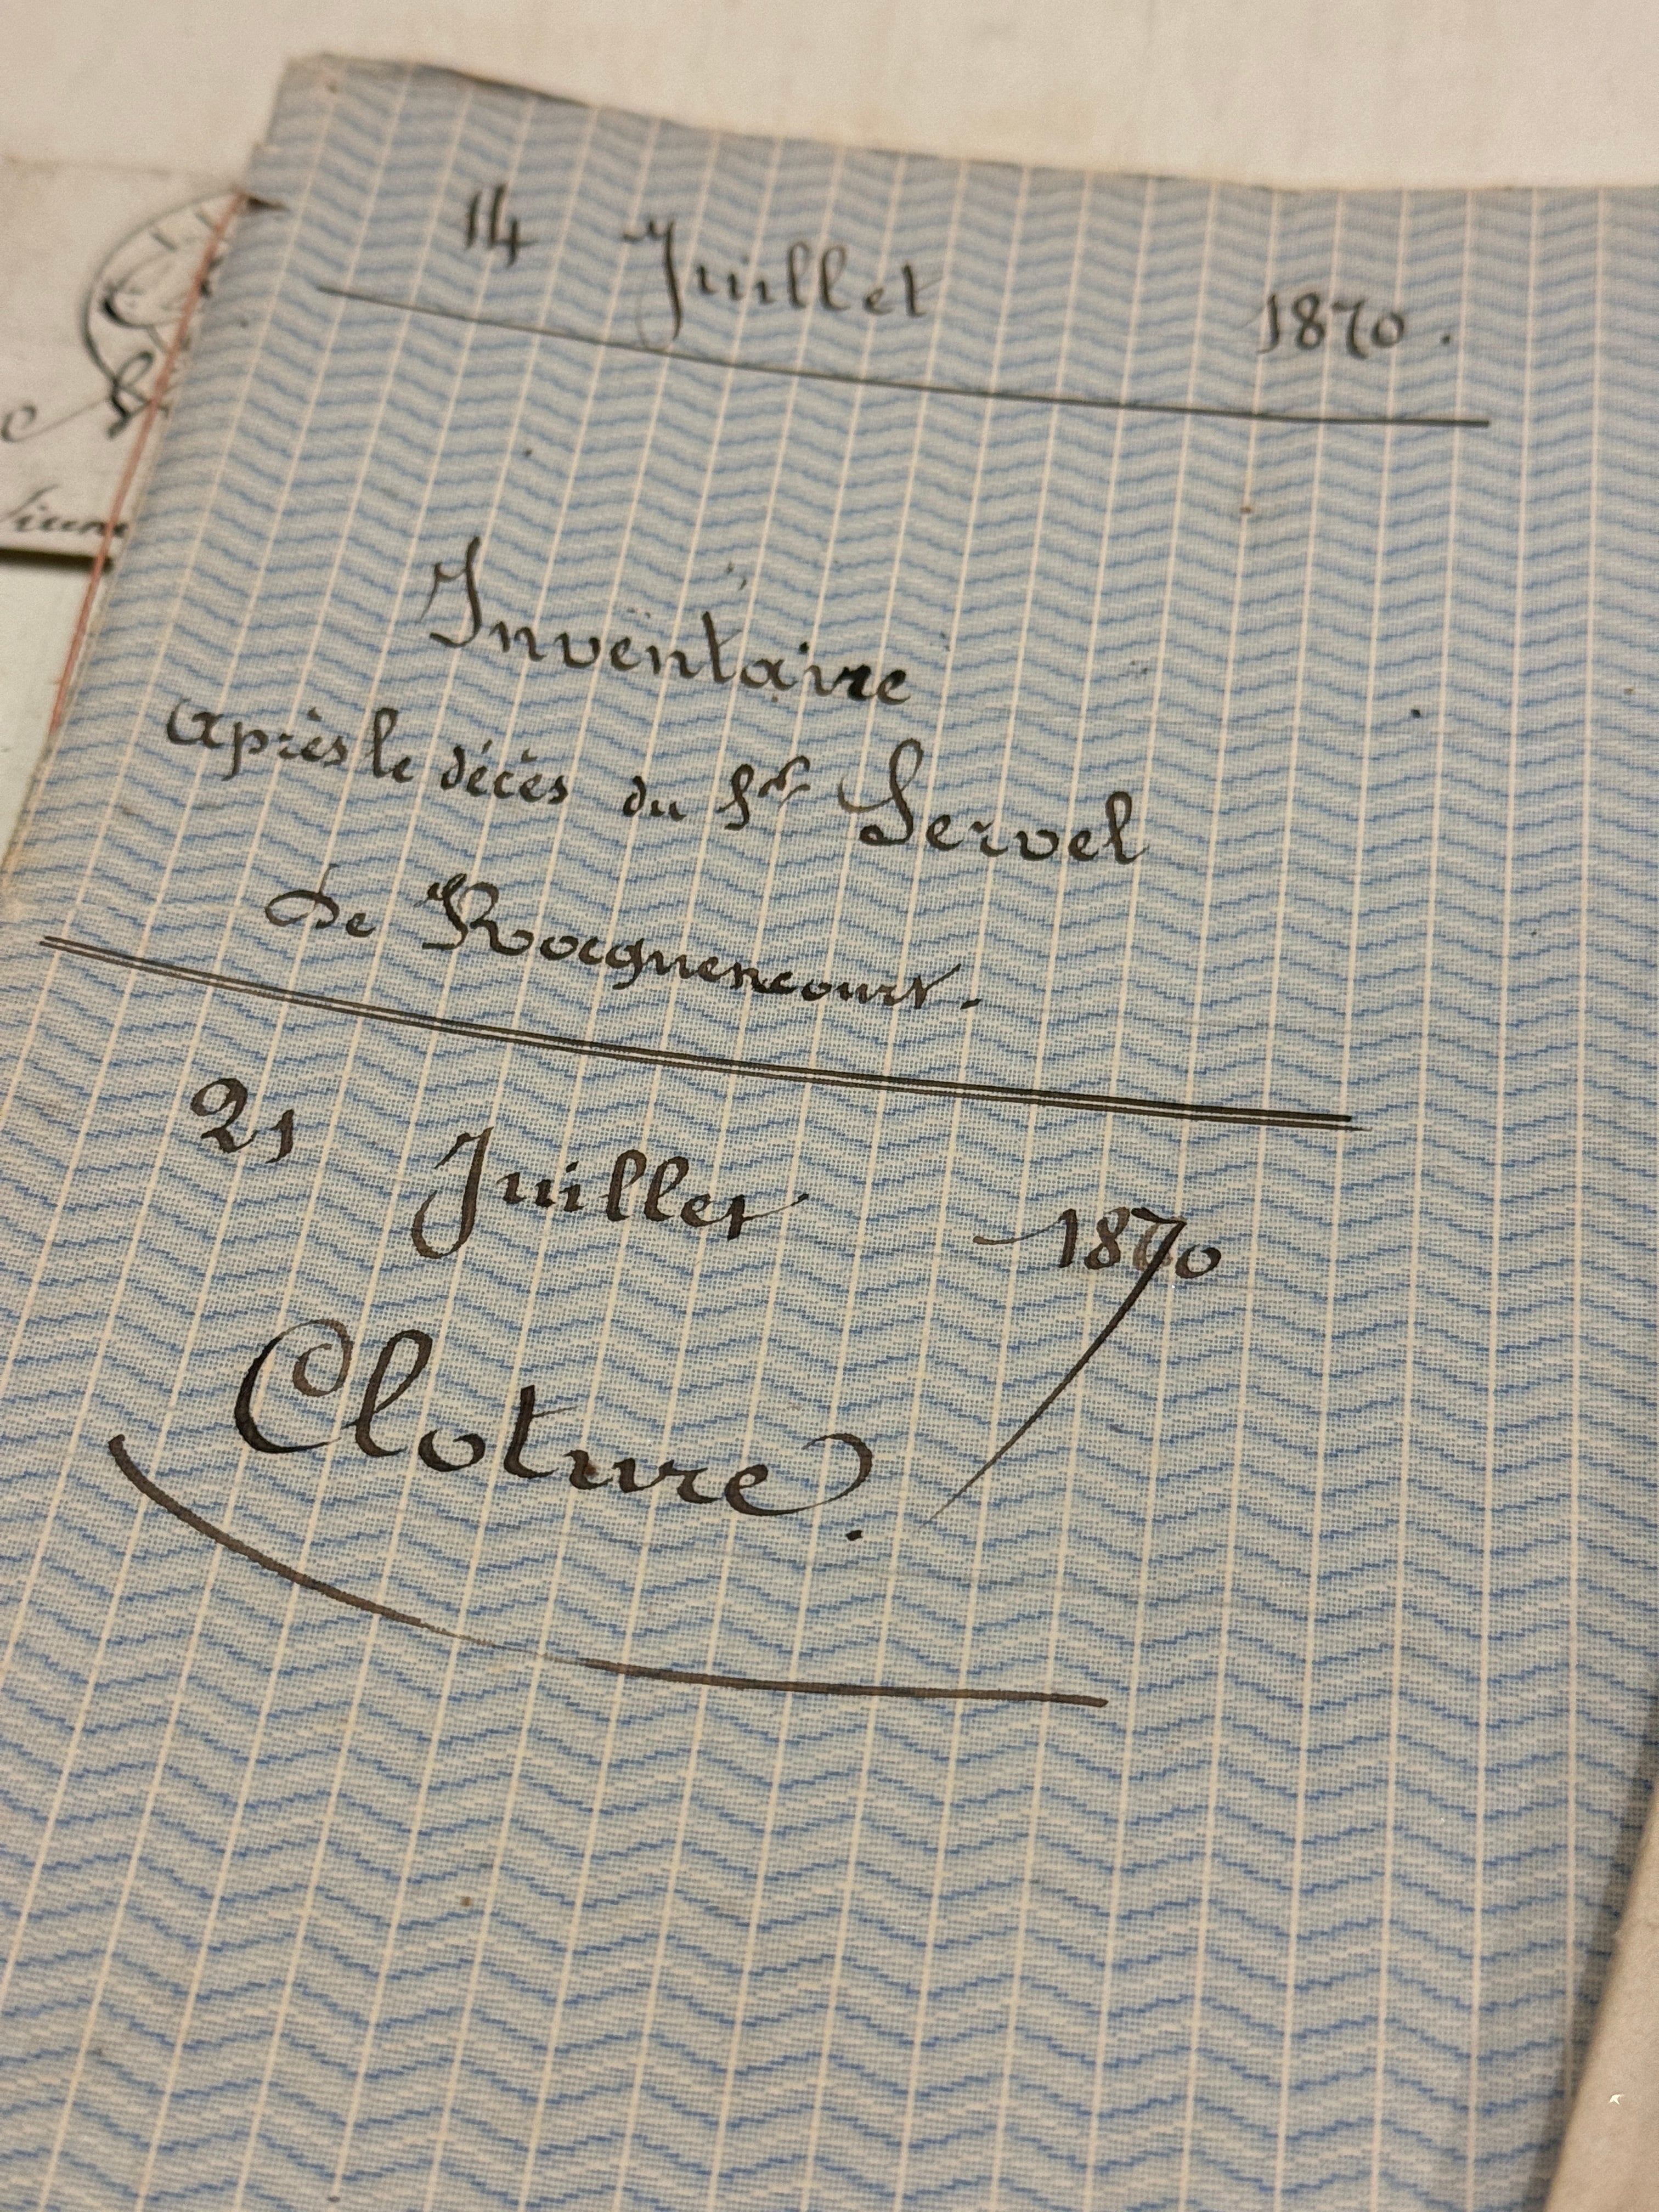 14 Juillet 1870.
Inventaire
après le décès du Sr Servel
de Rocquencourt.
21 Juillet 1870
Cloture.